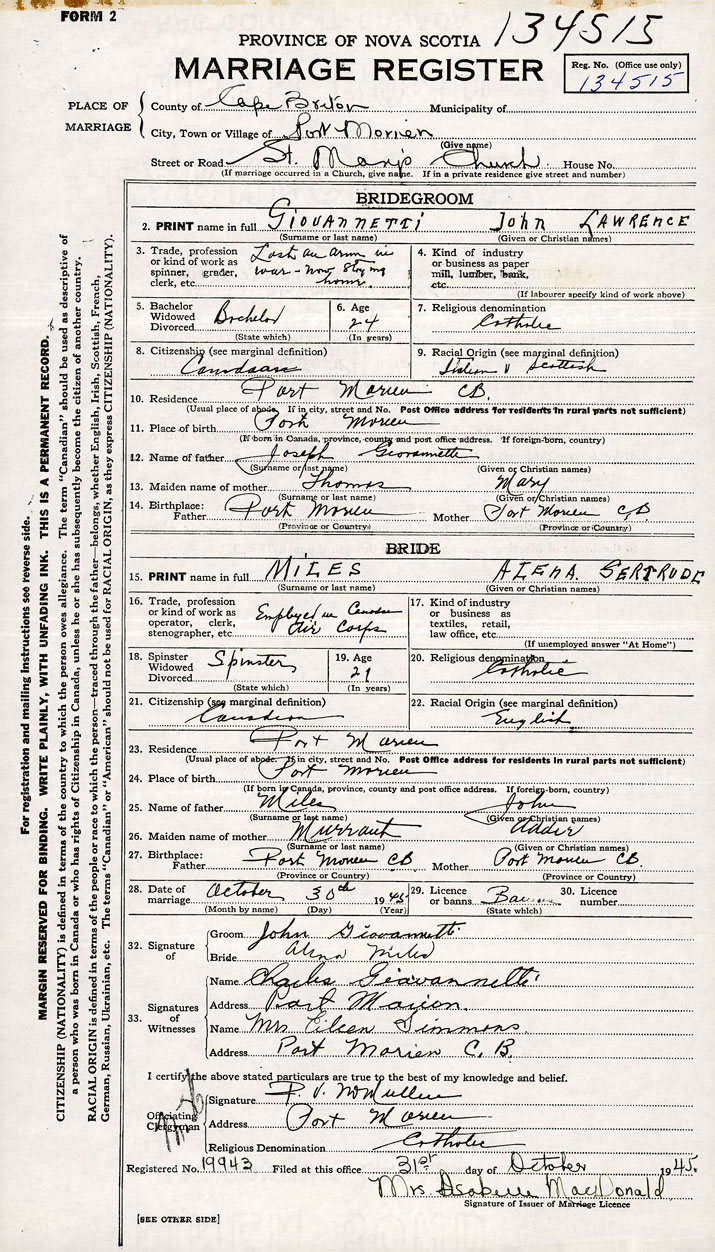 FORM 2
134515
PROVINCE OF NOVA SCOTIA
MARRIAGE REGISTER
Reg. No. (Office use only)
134515
PLACE OF MARRIAGE
County of Cape Breton Municipality of
City, Town or Village of Port Morien
(Give name)
Street or Road St. Mary's Church House No.
(If marriage occurred in a Church, give name. If in a private residence give street and number)
BRIDEGROOM
2. PRINT name in full GIOVANNETTI JOHN LAWRENCE
(Surname or last name) (Given or Christian names)
3. Trade, profession or kind of work as spinner, grader, clerk, etc. Lost an arm in war - now staying home.
4. Kind of industry or business as paper mill, lumber, bank, etc.
(If labourer specify kind of work above)
5. Bachelor Widowed Divorced Bachelor
(State which)
6. Age 24
(In years)
7. Religious denomination Catholic
8. Citizenship (see marginal definition) Canadian
9. Racial Origin (see marginal definition) Italian & Scottish
10. Residence Port Morien CB.
(Usual place of abode. If in city, street and No. Post Office address for residents in rural parts not sufficient)
11. Place of birth Port Morien
(If born in Canada, province, county and post office address. If foreign-born, country)
12. Name of father Joseph Giovannetti
(Surname or last name) (Given or Christian names)
13. Maiden name of mother Thomas Mary
(Surname or last name) (Given or Christian names)
14. Birthplace: Father Port Morien Mother Port Morien C.B.
(Province or Country) (Province or Country)
BRIDE
15. PRINT name in full MILES ALENA GERTRUDE
(Surname or last name) (Given or Christian names)
16. Trade, profession or kind of work as operator, clerk, stenographer, etc. Employed in Canadian Air Corps
17. Kind of industry or business as textiles, retail, law office, etc.
(If unemployed answer "At Home")
18. Spinster Widowed Divorced Spinster
(State which)
19. Age 21
(In years)
20. Religious denomination Catholic
21. Citizenship (see marginal definition) Canadian
22. Racial Origin (see marginal definition) English
23. Residence Port Morien
(Usual place of abode. If in city, street and No. Post Office address for residents in rural parts not sufficient)
24. Place of birth Port Morien
(If born in Canada, province, county and post office address. If foreign-born, country)
25. Name of father Miles John
(Surname or last name) (Given or Christian names)
26. Maiden name of mother Murrant Addie
(Surname or last name) (Given or Christian names)
27. Birthplace: Father Port Morien CB Mother Port Morien CB.
(Province or Country) (Province or Country)
28. Date of marriage October 30th 1945
(Month by name) (Day) (Year)
29. Licence or banns
(State which)
30. Licence number
32. Signature of
Groom John Giovannetti
Bride Alena Miles
33. Signatures of Witnesses
Name Charles Giovannetti
Address Port Morien.
Name Mrs Eileen Simmons.
Address Port Morien C.B.
I certify the above stated particulars are true to the best of my knowledge and belief.
Officiating Clergyman
Signature McMullin
Address Port Morien
Religious Denomination Catholic
Registered No. 19943 Filed at this office 31st day of October 1945.
Mrs. Isabelle MacDonald
Signature of Issuer of Marriage Licence
[SEE OTHER SIDE]
For registration and mailing instructions see reverse side.
MARGIN RESERVED FOR BINDING. WRITE PLAINLY, WITH UNFADING INK. THIS IS A PERMANENT RECORD.
CITIZENSHIP (NATIONALITY) is defined in terms of the country to which the person owes allegiance. The term "Canadian" should be used as descriptive of
a person who was born in Canada or who has rights of Citizenship in Canada, unless he or she has subsequently become the citizen of another country.
RACIAL ORIGIN is defined in terms of the people or race to which the person—traced through the father—belongs, whether English, Irish, Scottish, French,
German, Russian, Ukrainian, etc. The terms "Canadian" or "American" should not be used for RACIAL ORIGIN, as they express CITIZENSHIP (NATIONALITY).